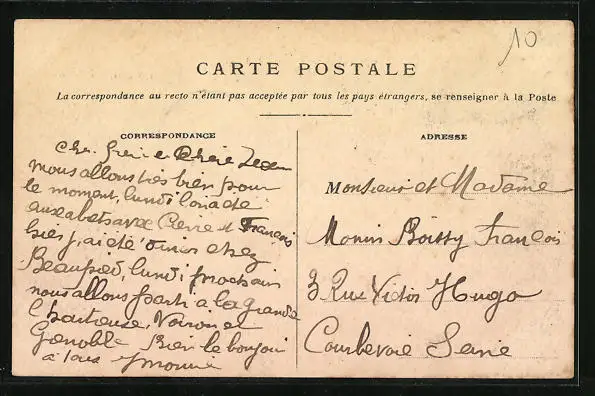 10
CARTE POSTALE
La correspondance au recto n'étant pas acceptée par tous les pays étrangers, se renseigner à la Poste
CORRESPONDANCE
ADRESSE
Cher frère et Chère
nous allons très bien pour
le moment, lundi l'on a été
avec Pierre et François
hier j'ai été diner chez
Beaupied, lundi prochain
nous allons partir à la grande
Chartreuse, Voiron et
Grenoble Bien le bonjour
à tous Yvonne
Monsieur et Madame
Monin Boissy François
3 Rue Victor Hugo
Courbevoie Seine